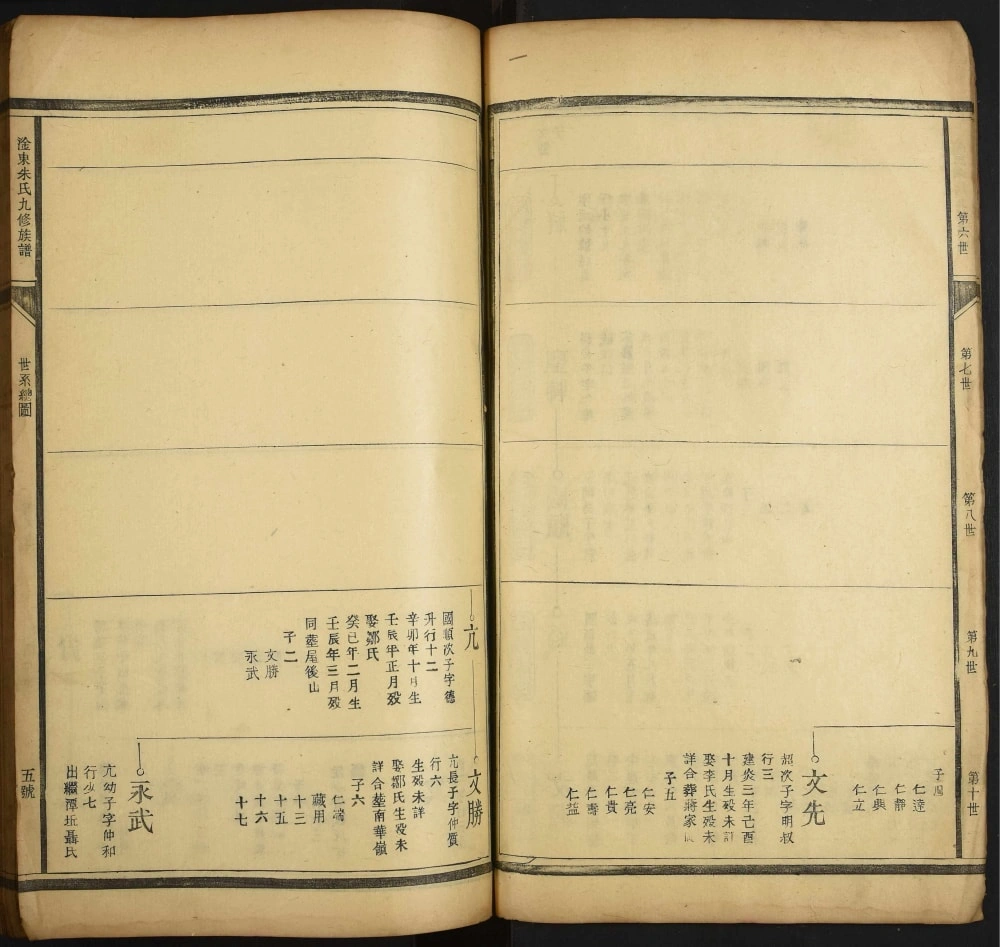 第六世
第七世
第八世
第九世
第十世
仁達
仁靜
仁典
仁立
文先
紹次子字明叔
行三
建炎三年己酉
十月生殁未詳
娶李氏生殁未
詳合葬蔣家
子五
仁安
仁亮
仁貴
仁壽
仁益
亢
國順次子字德
升行十二
辛卯年十月生
壬辰年正月殁
娶鄒氏
癸巳年二月生
壬辰年三月殁
同塟屋後山
子二
文勝
永武
文勝
亢長子字仲質
行六
生殁未詳
娶鄒氏生殁未
詳合塟南華嶺
子六
仁富
藏用
十三
十五
十六
十七
永武
亢幼子字仲和
行少七
出繼潭坵聶氏
淦東朱氏九修族譜
世系總圖
五號